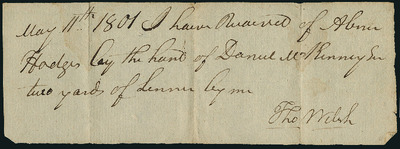 May 11th 1801 I have Received of Abner
Hodges by the hand of Daniel McKenney Jr
two yards of Lennen by me
Tho Welsh